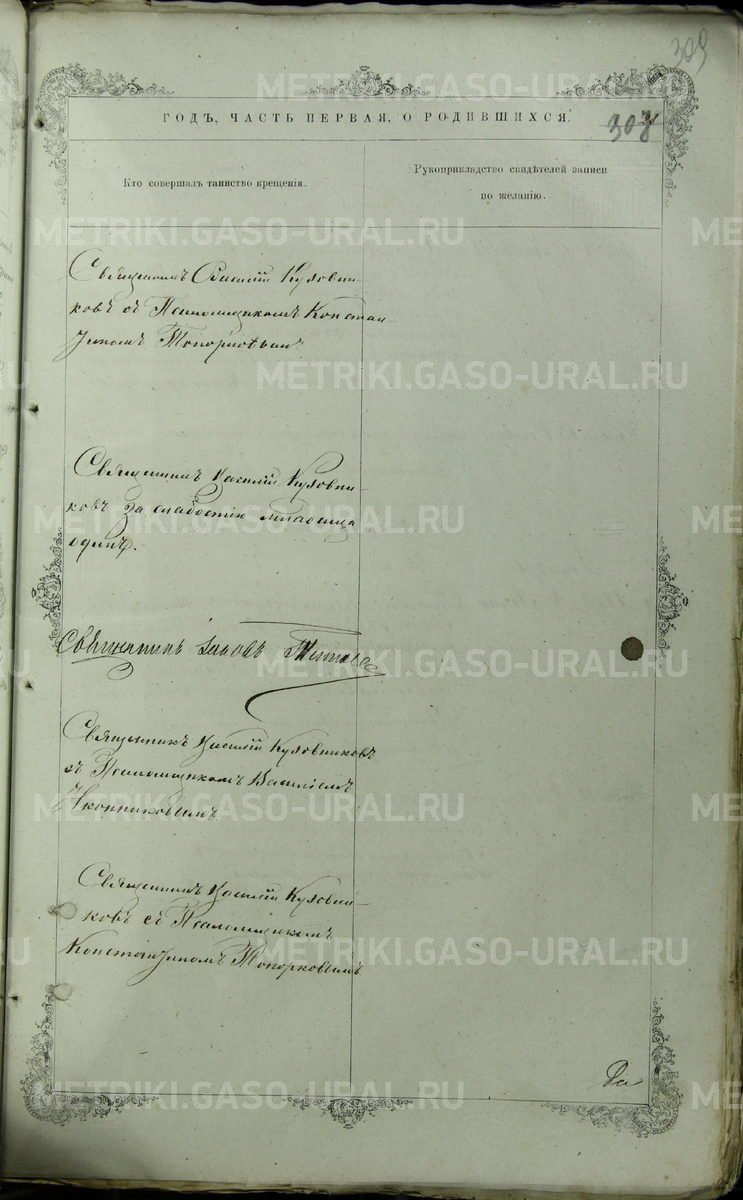 309
ГОДЪ, ЧАСТЬ ПЕРВАЯ, О РОДИВШИХСЯ.
308
Кто совершалъ таинство крещенія.
Рукоприкладство свидѣтелей записи
по желанію.
Священникъ Василій Кузовни-
ковъ съ Псаломщикомъ Констан
тиномъ
Священникъ Василій Кузовни-
ковъ за слабостію младенца
одинъ.
Священникъ
Священникъ Василій Кузовниковъ
съ Псаломщикомъ Василіемъ
Священникъ Василій Кузовни-
ковъ съ Псаломщикомъ
Константиномъ Топорковымъ
METRIKI.GASO-URAL.RU